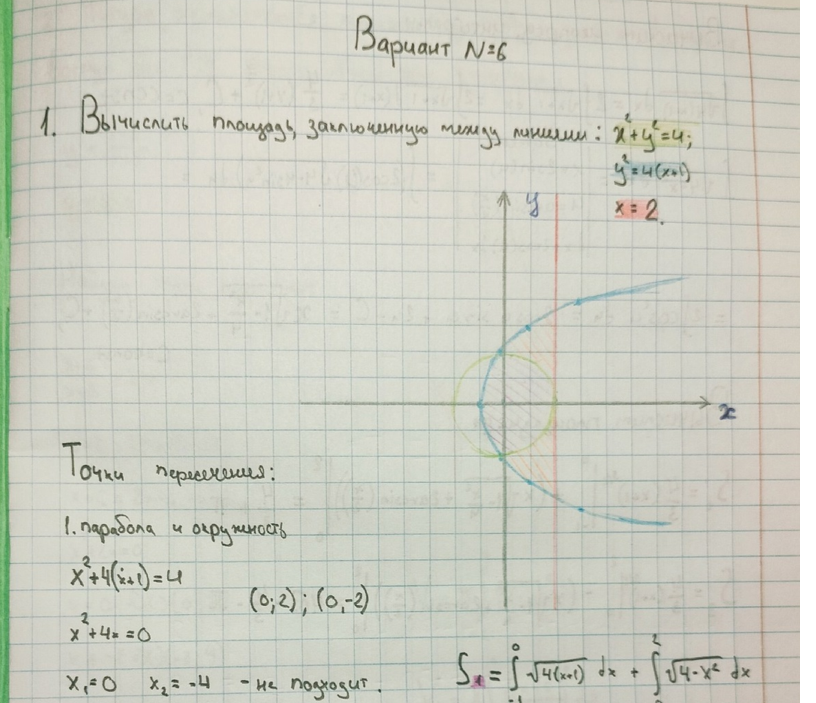 Вариант №6
1. Вычислить площадь, заключенную между линиями: x²+y²=4;
y²=4(x+1)
x = 2.
y
x
Точки пересечения:
1. парабола и окружность
x²+4(x+1)=4
(0;2); (0,-2)
x²+4x=0
x₁=0 x₂=-4 - не подходит.
S₁ = ∫₋₁⁰ √4(x+1) dx + ∫₀² √4-x² dx